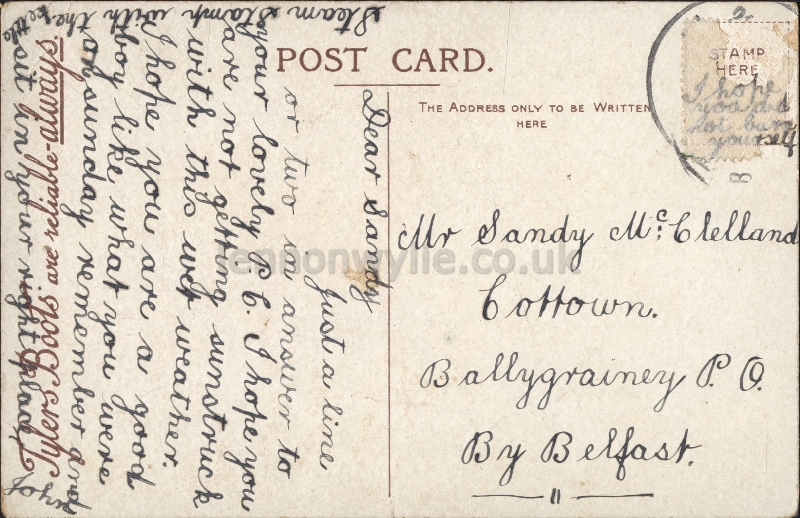 POST CARD.
THE ADDRESS ONLY TO BE WRITTEN
HERE
STAMP
HERE
I hope
you did
not burn
yourself
B
Dear Sandy
Just a line
or two in answer to
your lovely P.C. I hope you
are not getting sunstruck
with this wet weather.
I hope you are a good
boy like what you were
on sunday remember and
sit in your right place
Steam stamp with the kettle
Tylers Boots are reliable-always.
Mr Sandy McClelland
Cottown.
Ballygrainey P.O.
By Belfast.
lennonwylie.co.uk